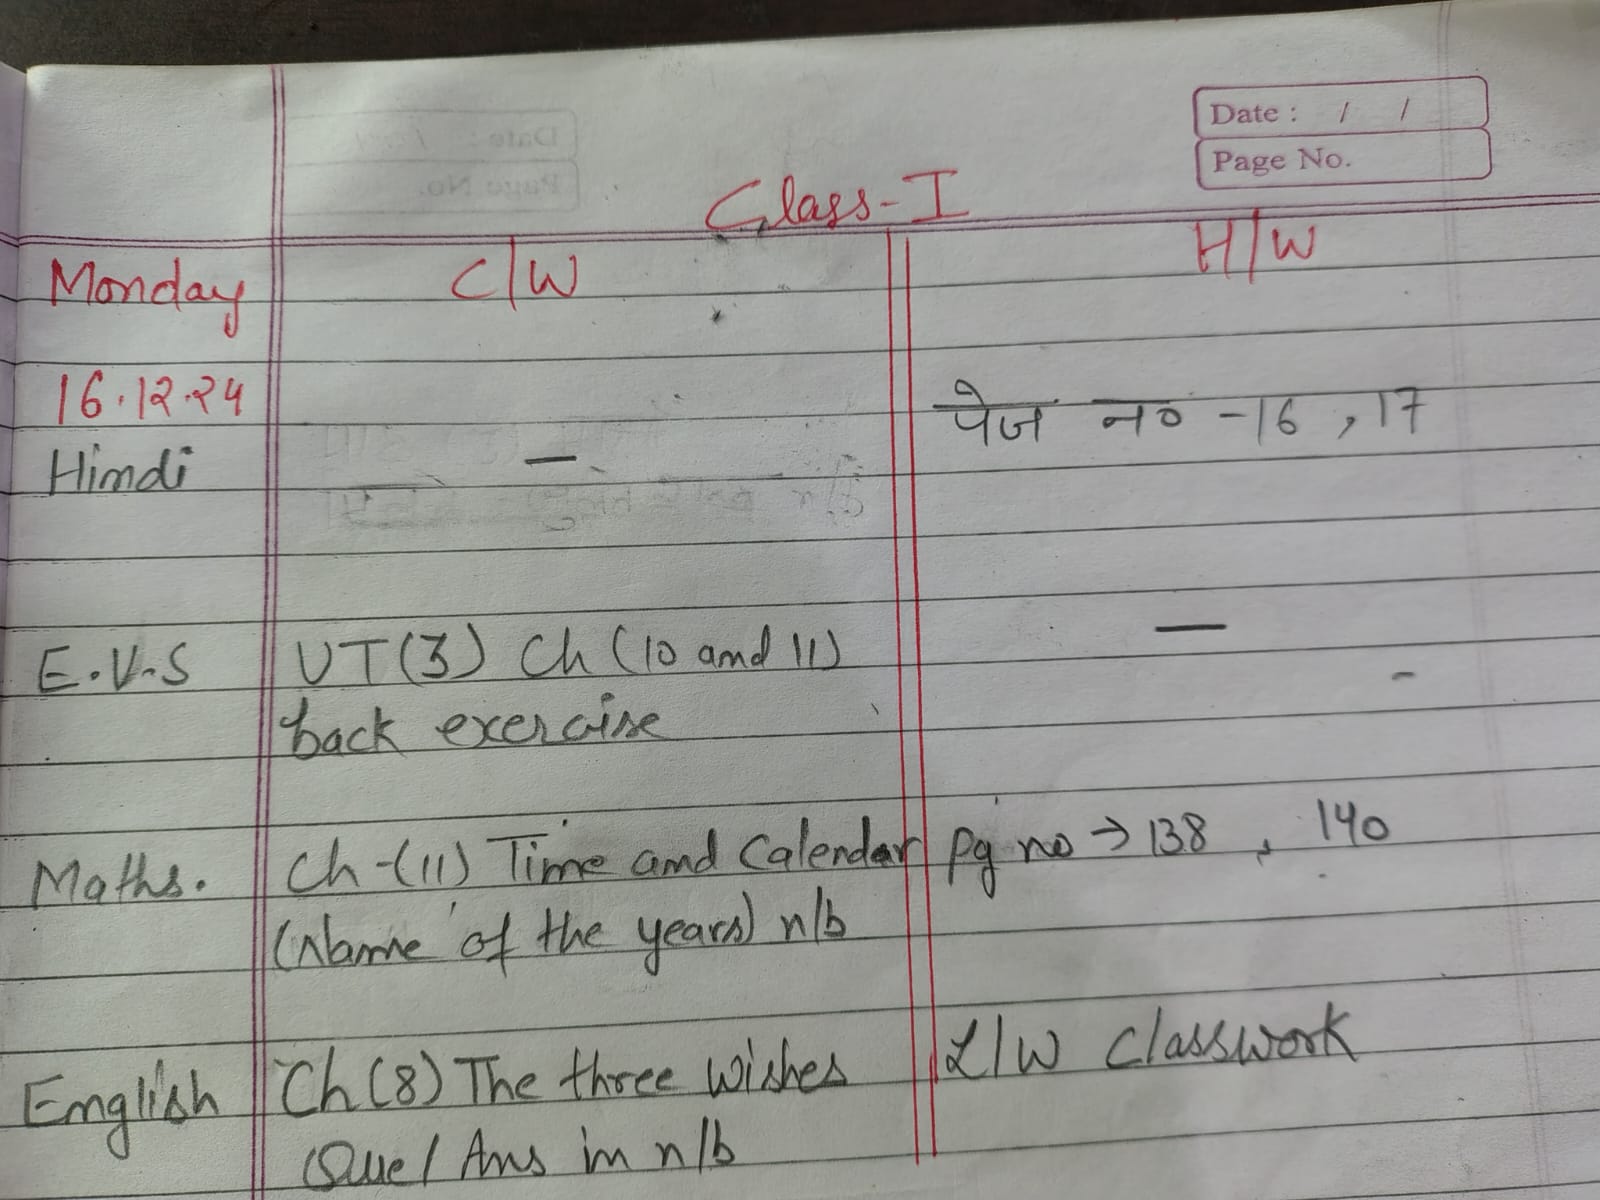 Date : / /
Page No.
Class-I
Monday C/W H/W
16.12.24
पेज न० -16 , 17
Hindi —
E.V.S UT(3) Ch (10 and 11) —
back exercise
Maths. Ch-(11) Time and Calendar Pg no → 138 , 140
(Name of the years) n/b
English Ch(8) The three wishes L/W Classwork
Que/Ans in n/b